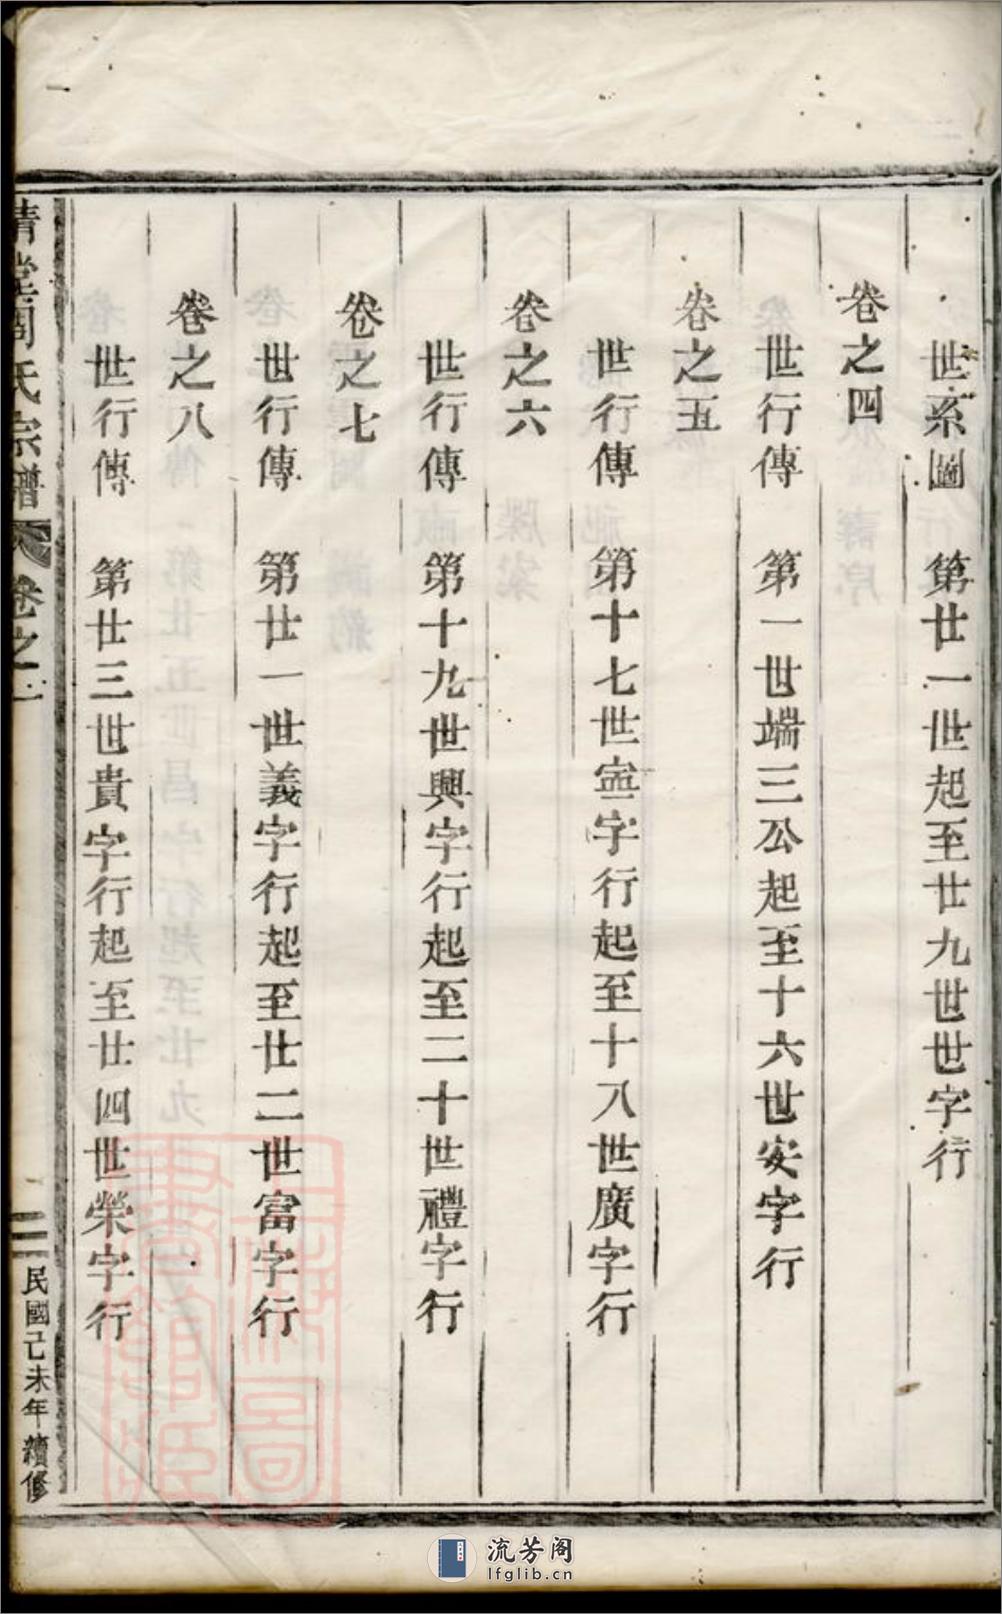 世系圖 第廿一世起至廿九世世字行
卷之四
世行傳 第一世端三公起至十六世安字行
卷之五
世行傳 第十七世寍字行起至十八世廣字行
卷之六
世行傳 第十九世興字行起至二十世禮字行
卷之七
世行傳 第廿一世義字行起至廿二世富字行
卷之八
世行傳 第廿三世貴字行起至廿四世榮字行
氏宗譜 卷之
二 民國己未年續修
流芳阁
lfglib.cn